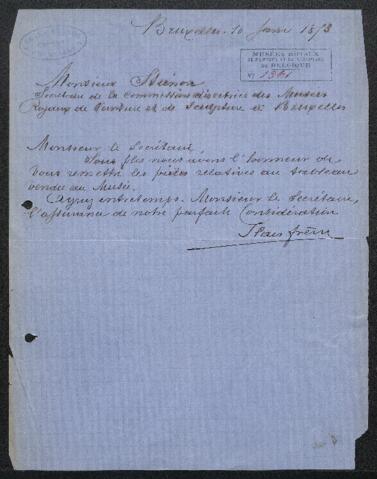 Bruxelles. 10 1873
MUSÉES ROYAUX
DE PEINTURE ET DE SCULPTURE
DE BELGIQUE
N° 1361
Monsieur Stiénon
Secrétaire de la Commission directrice des Musées
Royaux de Peinture et de Sculpture de Bruxelles
Monsieur le Secrétaire
nous avons l'honneur de
vous remettre les pièces relatives au tableau
vendu au Musée.
Agréez entretemps, Monsieur le Secrétaire,
l'assurance de notre parfaite Considération
frères